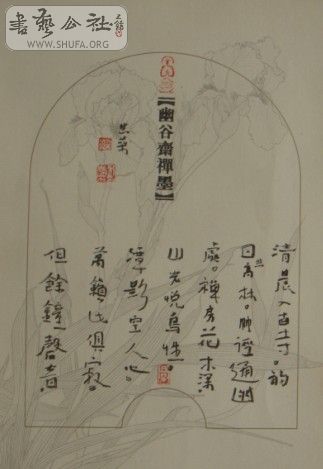 書藝公社
WWW.SHUFA.ORG
【幽谷齋禪墨】
清晨入古寺。初
日照高林。逕通幽
處。禪房花木深。
山光悅鳥性。
潭影空人心。
萬籟此俱寂。
但餘鐘磬音